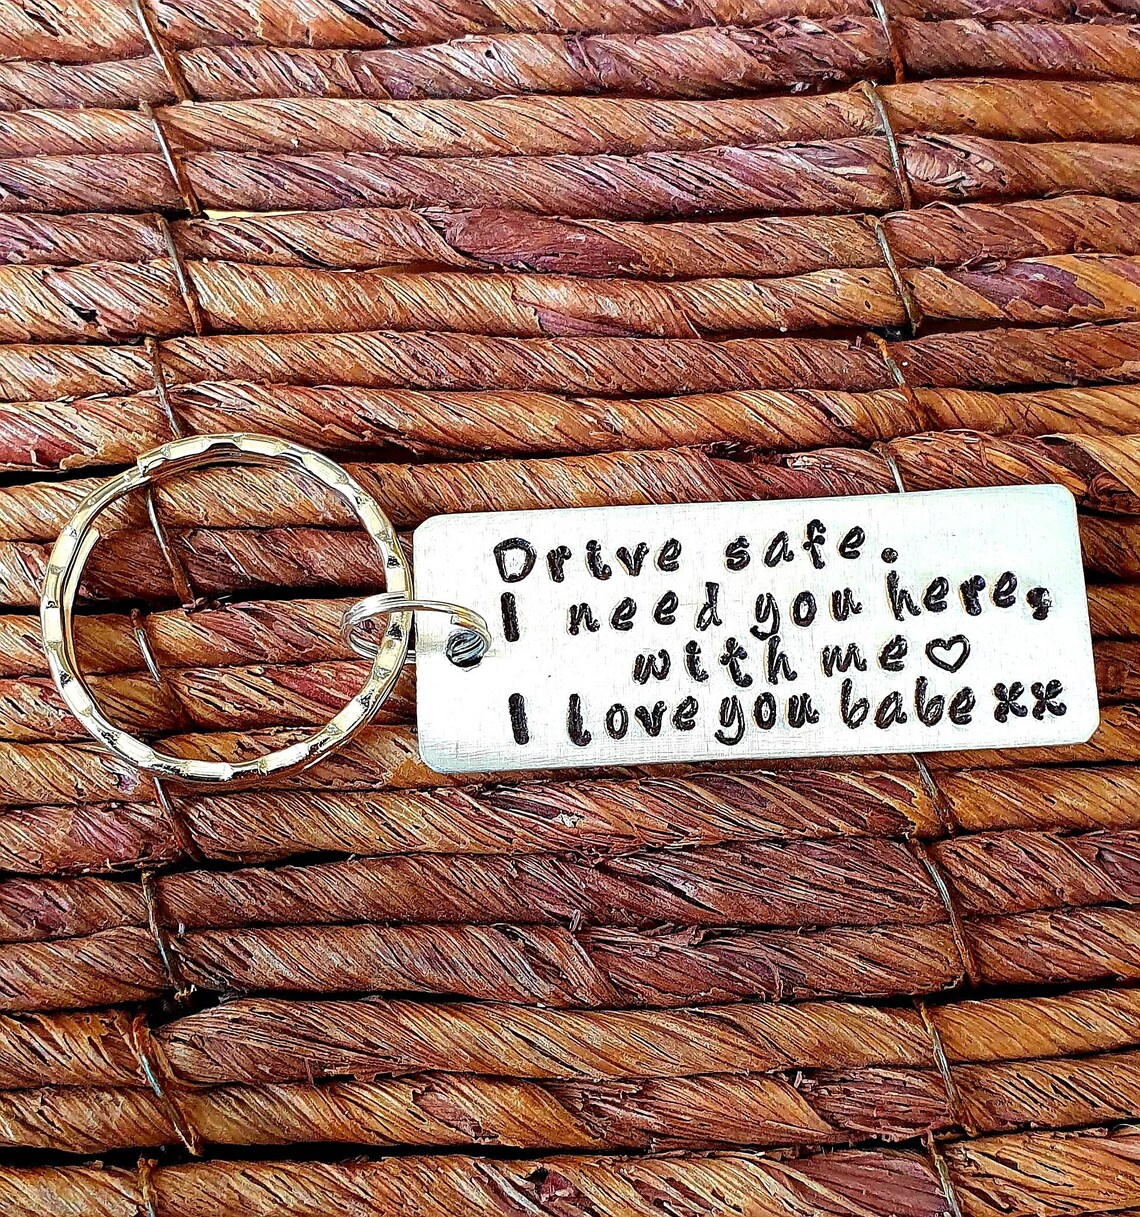 Drive safe.
I need you here,
with me♡
I love you babe xx